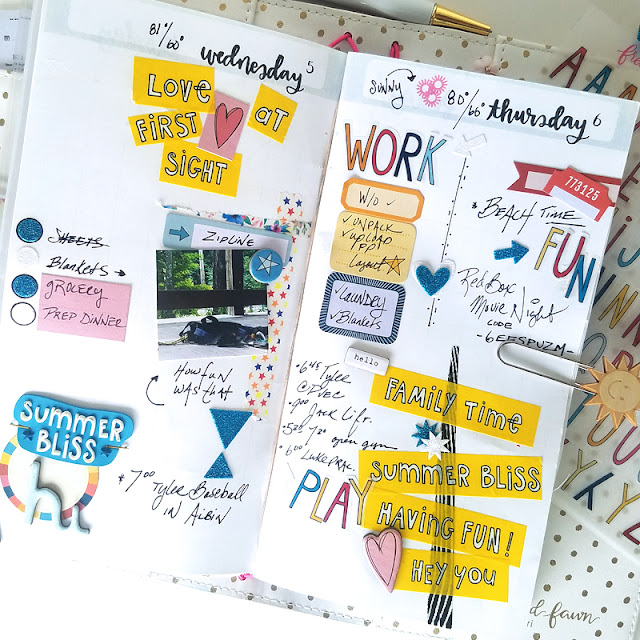 81°/60°
wednesday 5
LOVE AT
FIRST
SIGHT
SHEETS
Blankets
GROCERY
PREP DINNER
ZIPLINE
HOW FUN
WAS THAT
SUMMER
BLISS
hi
* 7:00
Tylee Baseball
IN Albin
SUNNY
80°/66°
thursday 6
WORK
W/O ✓
✓ UNPACK
✓ UPLOAD
Layout
✓ LAUNDRY
✓ Blankets
773125
BEACH TIME
FUN
RedBox
Movie Night
CODE
-6EFSPUZM-
hello
• 6:45 Tylee
@ PVEC
• 9:00 Jack Lift.
open gym
• 6:00 Luke PRAC.
PLAY
FAMILY TIME
SUMMER BLISS
HAVING FUN!
HEY YOU